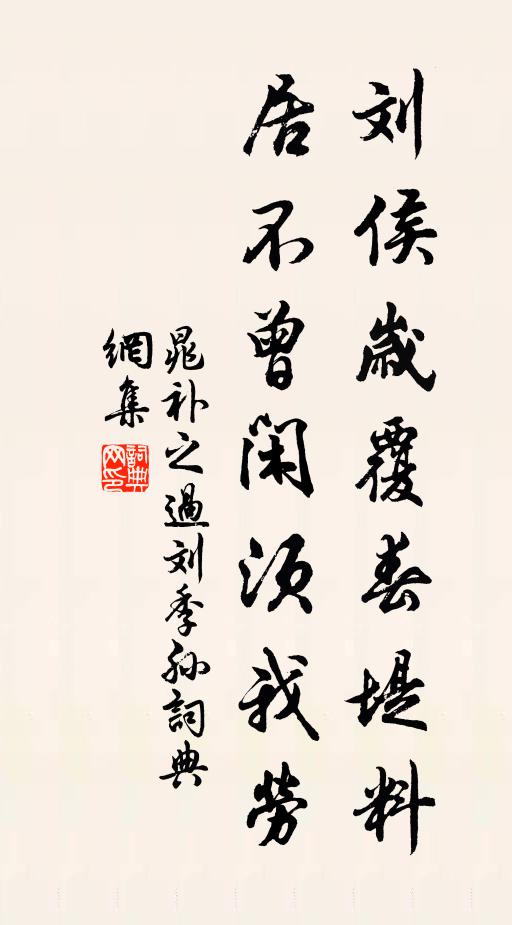 刘侯岁覆春堤料
居不曾閑须我勞
晁补之過刘季孙詞典
網集
詞典網印